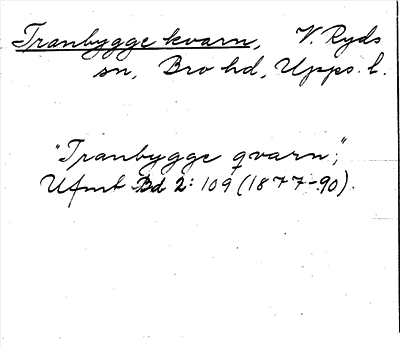 Tranbygge kvarn, V. Ryds
sn, Bro hd, Upps. l.
"Tranbygge qvarn",
Ufmt Bd 2: 109 (1877-90).